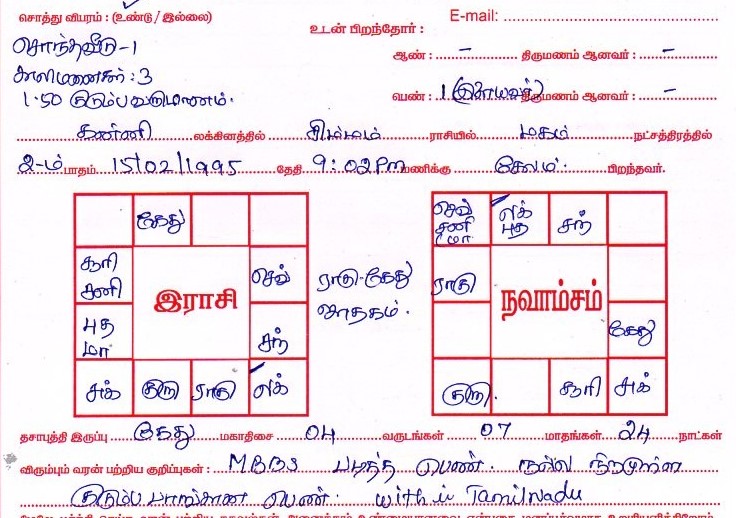 சொத்து விபரம் : (உண்டு / இல்லை)
E-mail:
உடன் பிறந்தோர் :
சொந்தவீடு-1
ஆண் : - திருமணம் ஆனவர் : -
காலிமனைகள் : 3
1.50 குடும்பவருமானம்.
பெண் : 1 (இளையவள்) திருமணம் ஆனவர் : -
கன்னி லக்கினத்தில் சிம்மம் ராசியில் மகம் நட்சத்திரத்தில்
2-ம் பாதம் 15/02/1995 தேதி 9:02 Pm மணிக்கு சேலம். பிறந்தவர்.
கேது
சூரி
சனி
செவ்
இராசி
புத
மா
சந்
சுக் குரு ராகு லக்
ராகு-கேது
ஜாதகம்.
செவ்
சனி
மா
லக்
புத
சந்
ராகு
நவாம்சம்
கேது
குரு. சூரி சுக்
தசாபுத்தி இருப்பு கேது மகாதிசை 04 வருடங்கள் 07 மாதங்கள் 24 நாட்கள்
விரும்பும் வரன் பற்றிய குறிப்புகள் : MBBS படித்த பெண். நல்ல நிறமுள்ள
குடும்ப பாங்கான பெண். with in Tamilnadu